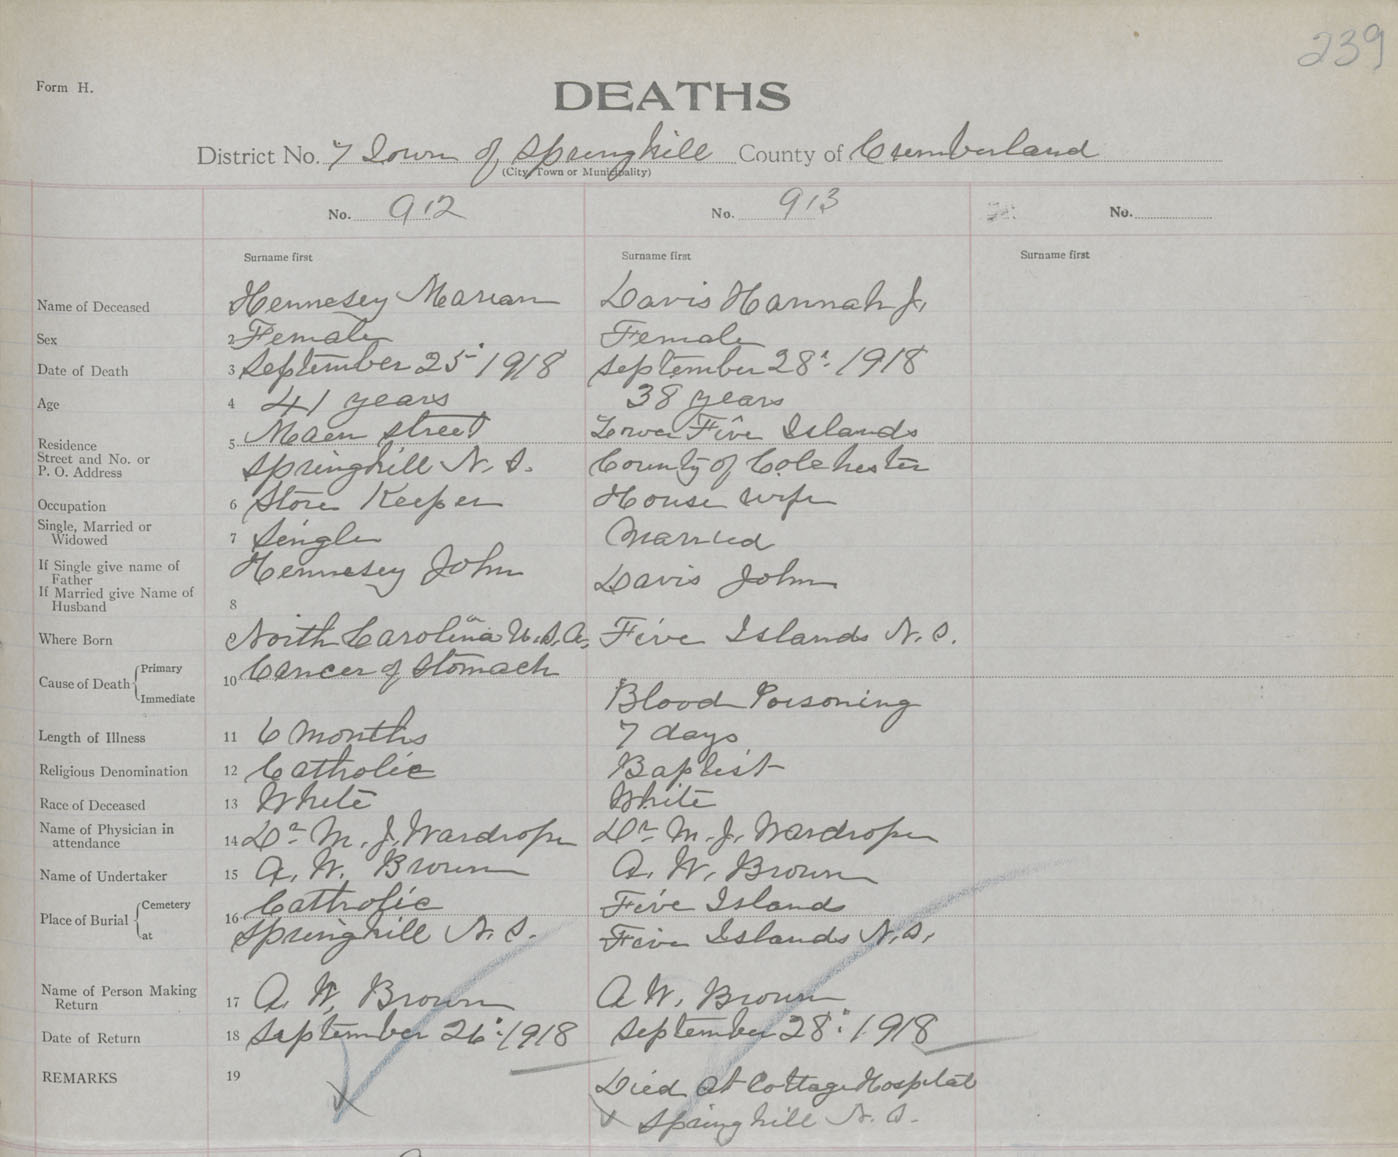 239
Form H.
DEATHS
District No. 7 Town of Springhill County of Cumberland
(City, Town or Municipality)
No. 912 No. 913 No.
Surname first Surname first Surname first
Name of Deceased Hennesey Marian Davis Hannah J.
Sex 2 Female Female
Date of Death 3 September 25 1918 September 28 1918
Age 4 41 years 38 years
Residence 5 Maen Street Lower Five Islands
Street and No. or
P. O. Address Springhill N. S. County of Colchester
Occupation 6 Store Keeper House wife
Single, Married or
Widowed 7 Single Married
If Single give name of
Father Hennesey John Davis John
If Married give Name of
Husband 8
Where Born North Carolina U.S.A. Five Islands N. S.
Cause of Death Primary 10 Cancer of Stomach
Immediate Blood Poisoning
Length of Illness 11 6 months 7 days
Religious Denomination 12 Catholic Baptist
Race of Deceased 13 White White
Name of Physician in
attendance 14 Dr M. J. Wardrope Dr M. J. Wardrope
Name of Undertaker 15 A. W. Brown A. W. Brown
Place of Burial Cemetery 16 Catholic Five Island
at Springhill N. S. Five Islands N.S.
Name of Person Making
Return 17 A. W. Brown A W. Brown
Date of Return 18 September 26 1918 September 28 1918
REMARKS 19 Died at Cottage Hospital
Springhill N. S.